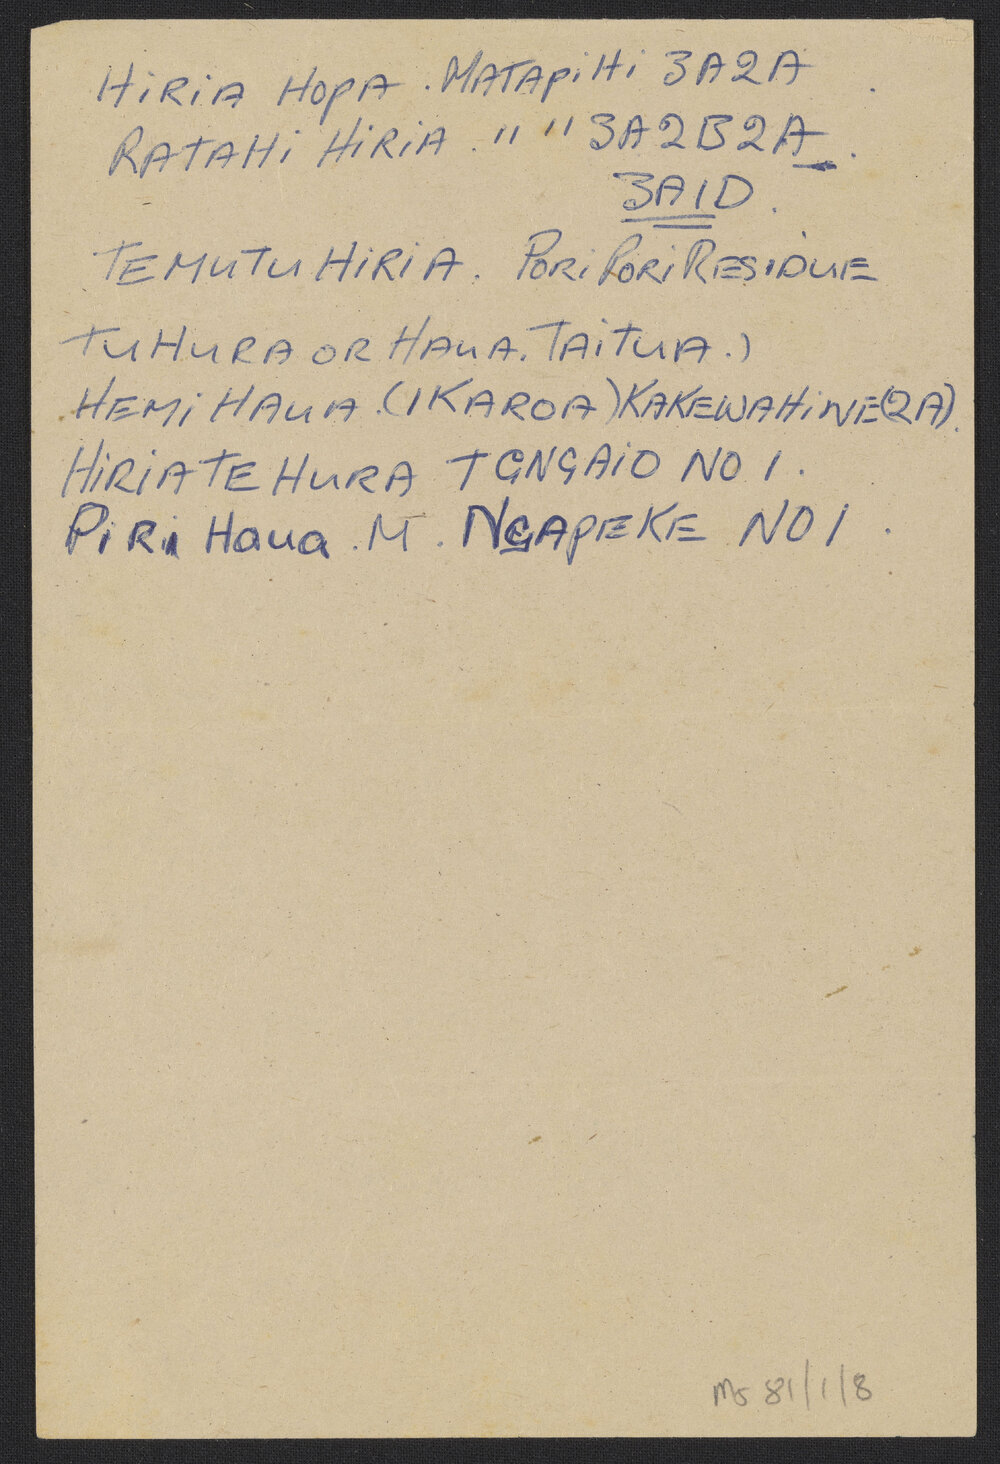 HiRiA HOPA . MATAPiHi 3A2A .
RATAHi HiRiA . " " 3A2B2A .
3A1D .
TEMUTU HiRiA . PORi PORi RESiDUE
TUHURA OR HAUA. TAiTUA .)
HEMi HAUA . (IKAROA) KAKEWAHiNE (2A).
HiRiA TE HURA T GNGAiO NO 1 .
PiRi Haua . M . NGAPEKE NO 1 .
Ms 81/1/8